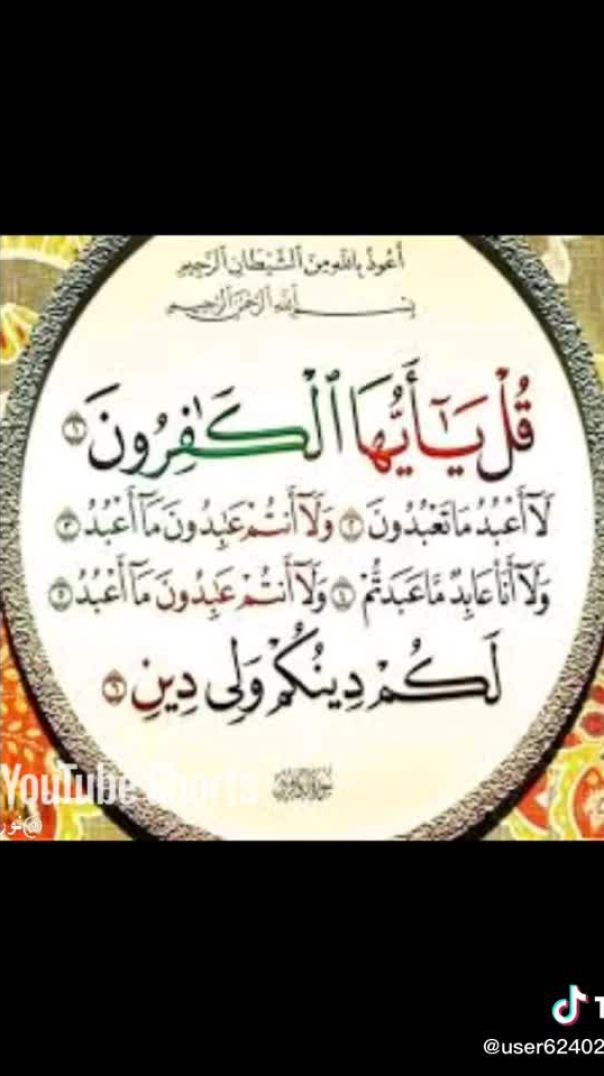 أَعُوذُ بِاللَّهِ مِنَ ٱلشَّيْطَانِ ٱلرَّجِيمِ
بِسْمِ ٱللَّهِ ٱلرَّحْمَٰنِ ٱلرَّحِيمِ
قُلْ يَـٰٓأَيُّهَا ٱلْكَـٰفِرُونَ ١
لَآ أَعْبُدُ مَا تَعْبُدُونَ ٢ وَلَآ أَنتُمْ عَـٰبِدُونَ مَآ أَعْبُدُ ٣
وَلَآ أَنَا۠ عَابِدٌ مَّا عَبَدتُّمْ ٤ وَلَآ أَنتُمْ عَـٰبِدُونَ مَآ أَعْبُدُ ٥
لَكُمْ دِينُكُمْ وَلِىَ دِينِ ٦
سورة الكافرون
YouTube Shorts
@نور
T
@user62402